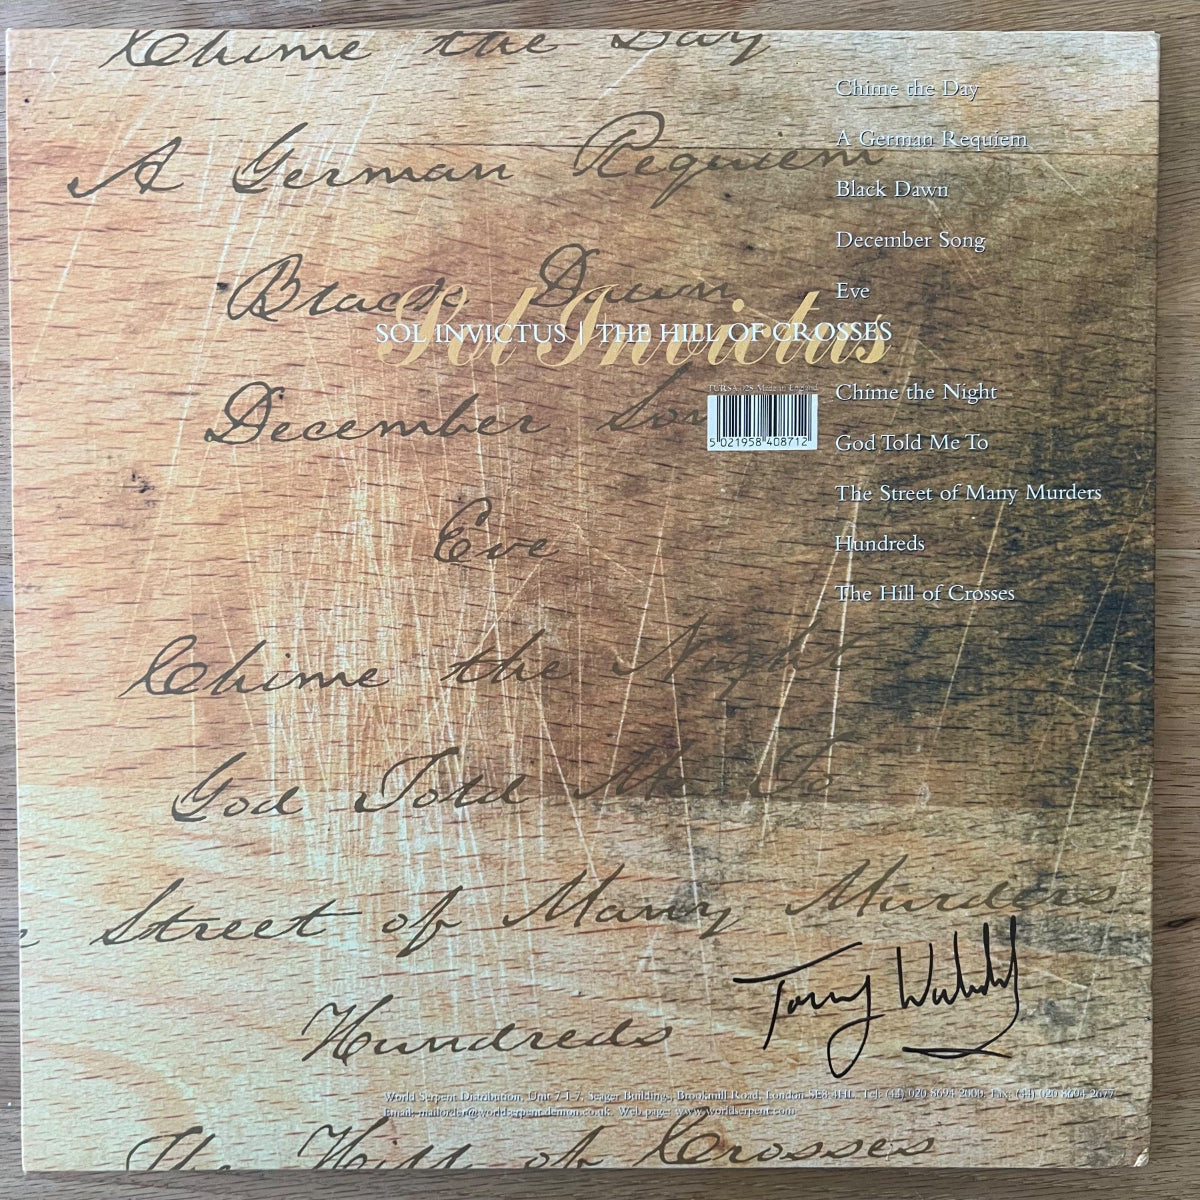 Chime the Day
A German Requiem
Black Dawn
December Song
Eve
Chime the Night
God Told Me To
Street of Many Murders
Hundreds
The Hill of Crosses
Sol Invictus
SOL INVICTUS | THE HILL OF CROSSES
TURSA 028 Made in England
5 021958 408712
Chime the Day
A German Requiem
Black Dawn
December Song
Eve
Chime the Night
God Told Me To
The Street of Many Murders
Hundreds
The Hill of Crosses
Tony Wakeford
World Serpent Distribution, Unit 7-1-7, Seager Buildings, Brookmill Road, London SE8 4HL. Tel: (44) 020 8694 2000. Fax: (44) 020 8694 2677
Email: mailorder@worldserpent.demon.co.uk Web page: www.worldserpent.com